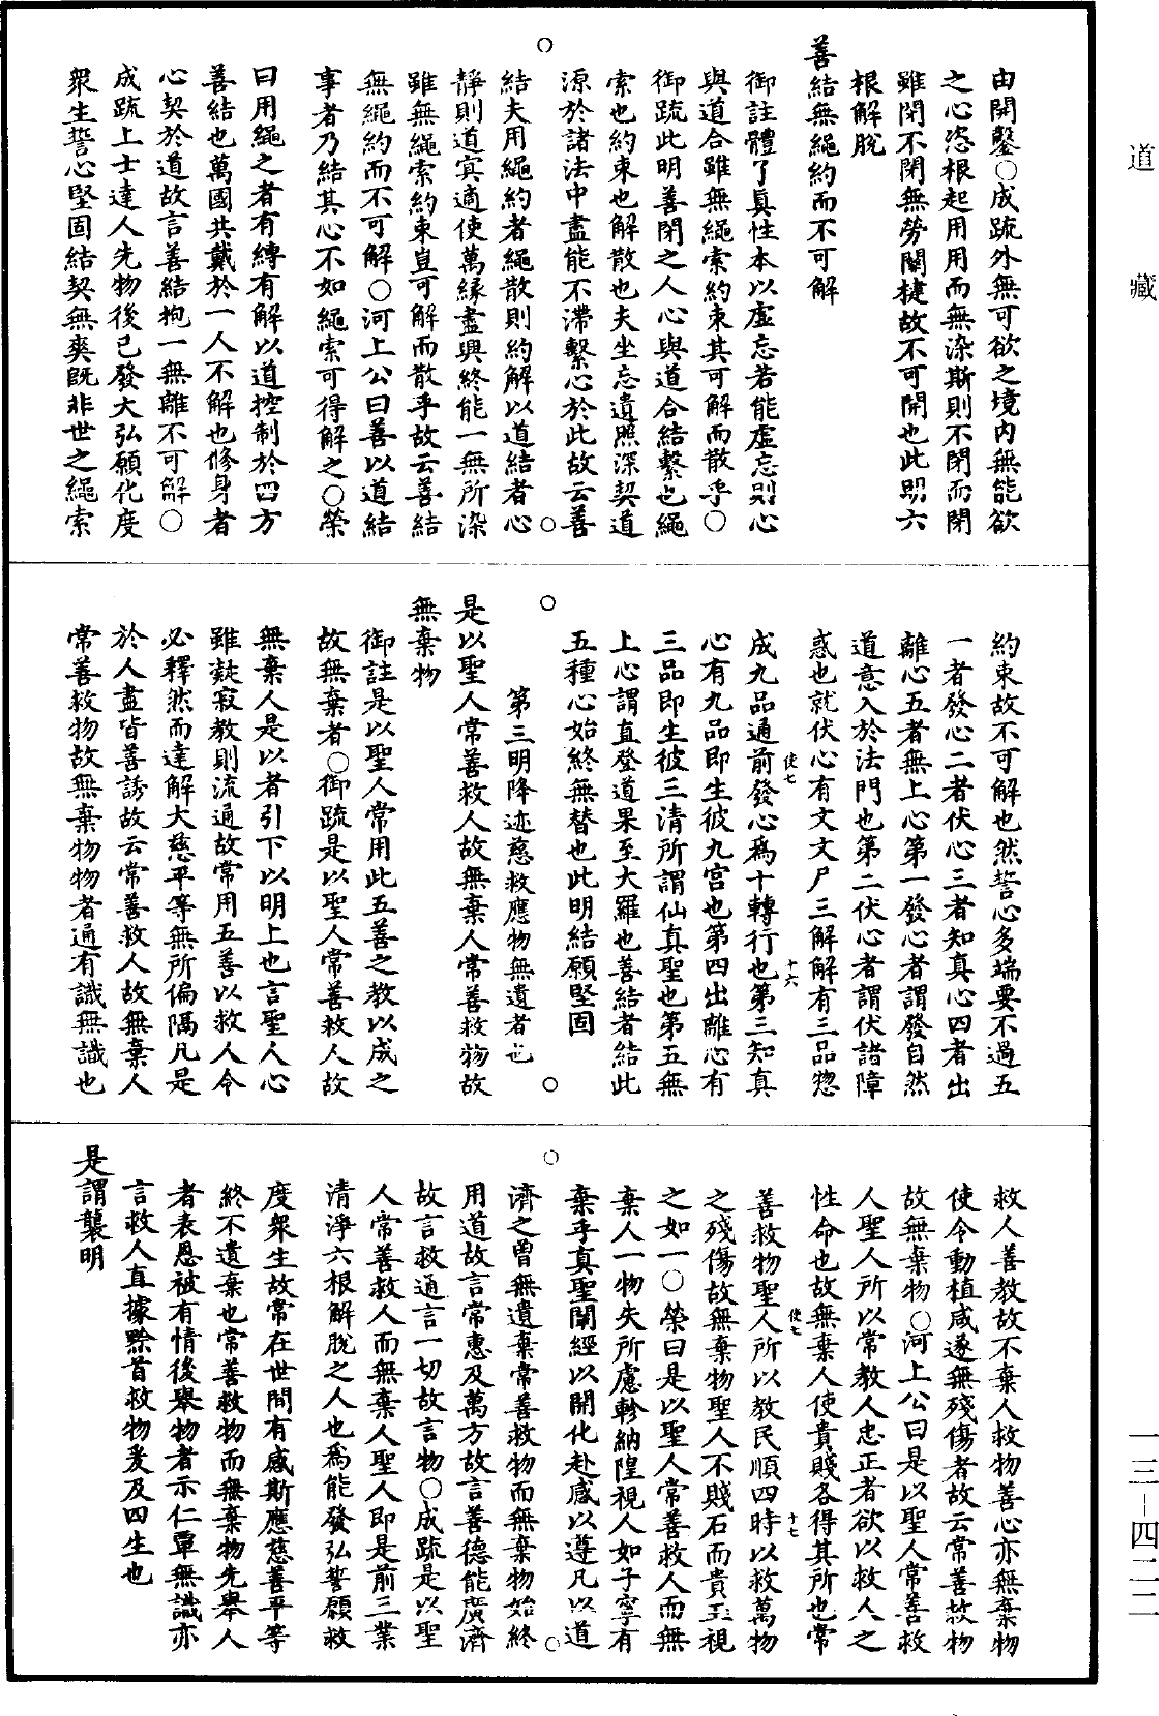 道藏
由開鑿○成疏外無可欲之境內無能欲
之心恣根起用用而無染斯則不閉而閉
雖閉不閉無勞關楗故不可開也此明六
根解脫
善結無繩約而不可解
御註體了真性本以虛忘若能虛忘則心
與道合雖無繩索約束其可解而散乎○
御疏此明善閉之人心與道合結繫也繩
索也約束也解散也夫坐忘遺照深契道
源於諸法中盡能不滯繫心於此故云善
結夫用繩約者繩散則約解以道結者心
靜則道寘適使萬緣盡興終能一無所染
雖無繩索約束豈可解而散乎故云善結
無繩約而不可解○河上公曰善以道結
事者乃結其心不如繩索可得解之○榮
曰用繩之者有縛有解以道控制於四方
善結也萬國共戴於一人不解也修身者
心契於道故言善結抱一無離不可解○
成疏上士達人先物後己發大弘願化度
衆生誓心堅固結契無爽旣非世之繩索
約束故不可解也然誓心多端要不過五
一者發心二者伏心三者知真心四者出
離心五者無上心第一發心者謂發自然
道意入於法門也第二伏心者謂伏諸障
惑也就伏心有文文尸三解解有三品惣
使七 十六
成九品通前發心爲十轉行也第三知真
心有九品即生彼九宮也第四出離心有
三品即生彼三清所謂仙真聖也第五無
上心謂直登道果至大羅也善結者結此
五種心始終無替也此明結願堅固
第三明降迹慈救應物無遺者也
是以聖人常善救人故無棄人常善救物故
無棄物
御註是以聖人常用此五善之教以成之
故無棄者○御疏是以聖人常善救人故
無棄人是以者引下以明上也言聖人心
雖凝寂教則流通故常用五善以救人令
必釋然而達解大慈平等無所偏隔凡是
於人盡皆善誘故云常善救人故無棄人
常善救物故無棄物物者通有識無識也
救人善教故不棄人救物善心亦無棄物
使令動植咸遂無殘傷者故云常善救物
故無棄物○河上公曰是以聖人常善救
人聖人所以常教人忠正者欲以救人之
性命也故無棄人使貴賤各得其所也常
使七 十七
善救物聖人所以教民順四時以救萬物
之殘傷故無棄物聖人不賤石而貴玉視
之如一○榮曰是以聖人常善救人而無
棄人一物失所慮軫納隍視人如子寧有
棄乎真聖闡經以開化赴感以遵凡以道
濟之曾無遺棄常善救物而無棄物始終
用道故言常惠及萬方故言善德能廣濟
故言救通言一切故言物○成疏是以聖
人常善救人而無棄人聖人即是前三業
清淨六根解脫之人也爲能發弘誓願救
度衆生故常在世間有感斯應慈善平等
終不遺棄也常善救物而無棄物先舉人
者表恩被有情後舉物者示仁覃無識亦
言救人直據黔首救物爰及四生也
是謂襲明
一三-四二二